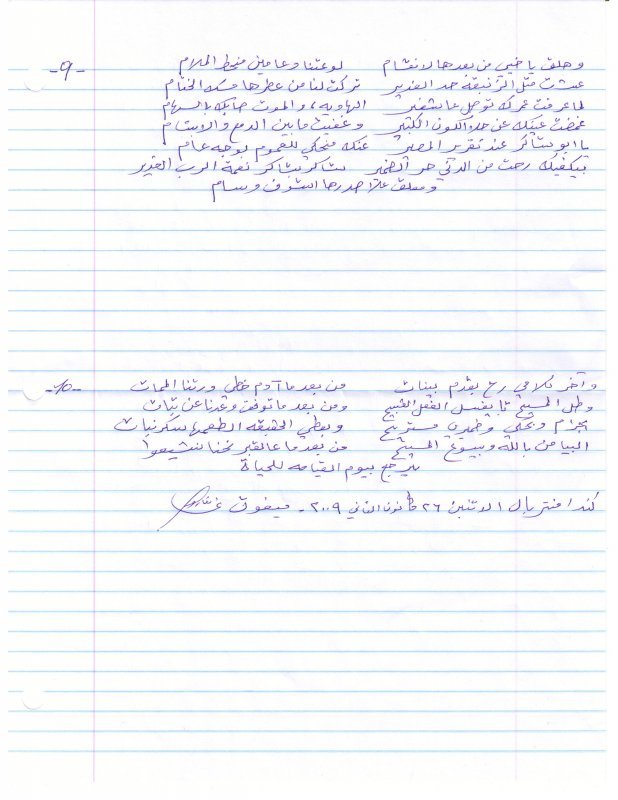 -٩-
وهلق يا خيي من بعدها لانقسام لوعتنا وعا مين منحط الملام
عشت متل الزنبقة حد الغدير تركت لنا من عطرها مسك الختام
لما عرفت عمرك توصل عا شفير الهاويه، والموت صابك بالسهام
غمضت عينيك عن هدا الكون الكبير وغفيت ما بين الدمع والابتسام
يا ابو شاكر عند تقرير المصير عنك منحكي للعموم بوجه عام
بيكفيك رحت من الدني حر الضمير شاكر بشاكر نعمة الرب القدير
ومعلق علا صدرها الشرف وسام
-١٠-
وآخر كلامي رح بقدم بينات من بعد ما آدم خطي ورتنا الممات
وطل المسيح تا يغسل الفعل القبيح ومن بعد ما توفق وغدنا عن تبات
بجرام ويحكي وضميري مستريح وبعطي الحقيقه الطعمها سكر نبات
البيامن بالله وبيسوع المسيح من بعد ما عالقبر نحنا
بيرجع بيوم القيامه للحياة
كندا منتريال الاثنين ٢٦ كانون الثاني ٢٠٠٩ - ميفوق